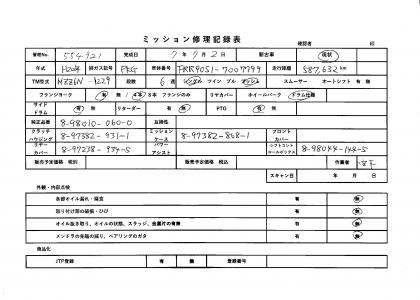 ミッション修理記録表
確認者 印
管理No. 554921 完成日 7年7月2日 新古車 現状
年式 H20年 排ガス記号 PKG 車体番号 FRR90S1-7007799 走行距離 587,632 km
TM型式 MZZ6W 段数 6速 シングル ツイン プル プッシュ スムーサー オートシフト 有 無
フランジヨーク 有 無 4本 8本 フランジのみ リヤカバー ホイールパーク ドラム仕様
サイドドラム 有 無 リターダー 有 無 PTO 有 無
純正品番 8-98010-060-0 互換性
クラッチハウジング 8-97382-931-1 ミッションケース 8-97382-868-1 フロントカバー
リヤーカバー 8-97238-934-5 パワーアシスト シフトコントロールボックス 8-98044-144-5
販売予定価格 税別 販売予定価格 税込 作業者
スキャン日 年 月 日
外観・内部点検
各部オイル漏れ・腐食 有 無
取り付け部の破損・ひび 有 無
オイル抜き取り、オイルの状態、スラッジ、金属片の有無 有 無
メンドラの発錆の減り、ベアリングのガタ 有 無
商品化
JTP登録 有 無 登録番号